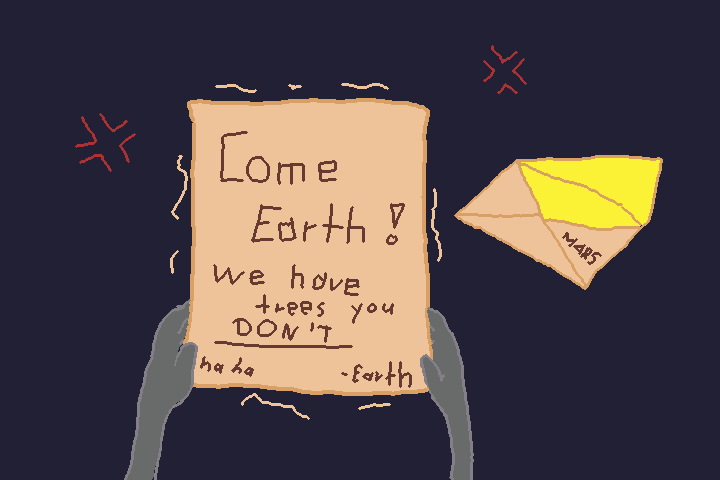 Come
Earth!
we have
trees you
DON'T
haha
-Earth
MARS